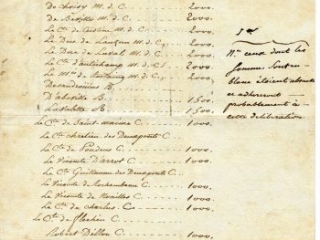 De Choisy M. d. C. 2000.
2000.
Le Cte de Custine M. d. C. 2000.
Le Duc de Lauzun M. d. C. 2000.
Le Duc de Laval M. d. C. 2000.
Le Cte d'autichamp 2000.
Le Mis de 2000.
Desandroüins B.
D'aboville B. 1500.
1500.
Le Cte de Saint-maime C. 1000.
Le Cte chretien des Deuxponts C.
Le Cte de C. 1000.
Le Vicomte D'arrot C. 1000.
Le Cte Guillaume des Deuxponts C.
Le Vicomte de Rochambeau C. 1000.
Le Vicomte de Noailles C. 1000.
Le Cte de charlus C. 1000.
Le Cte de C.
Robert Dillon C. 1000.
ceux dont les
sommes sont en
blanc étoient absents
et adhereront
probablement à
cette deliberation